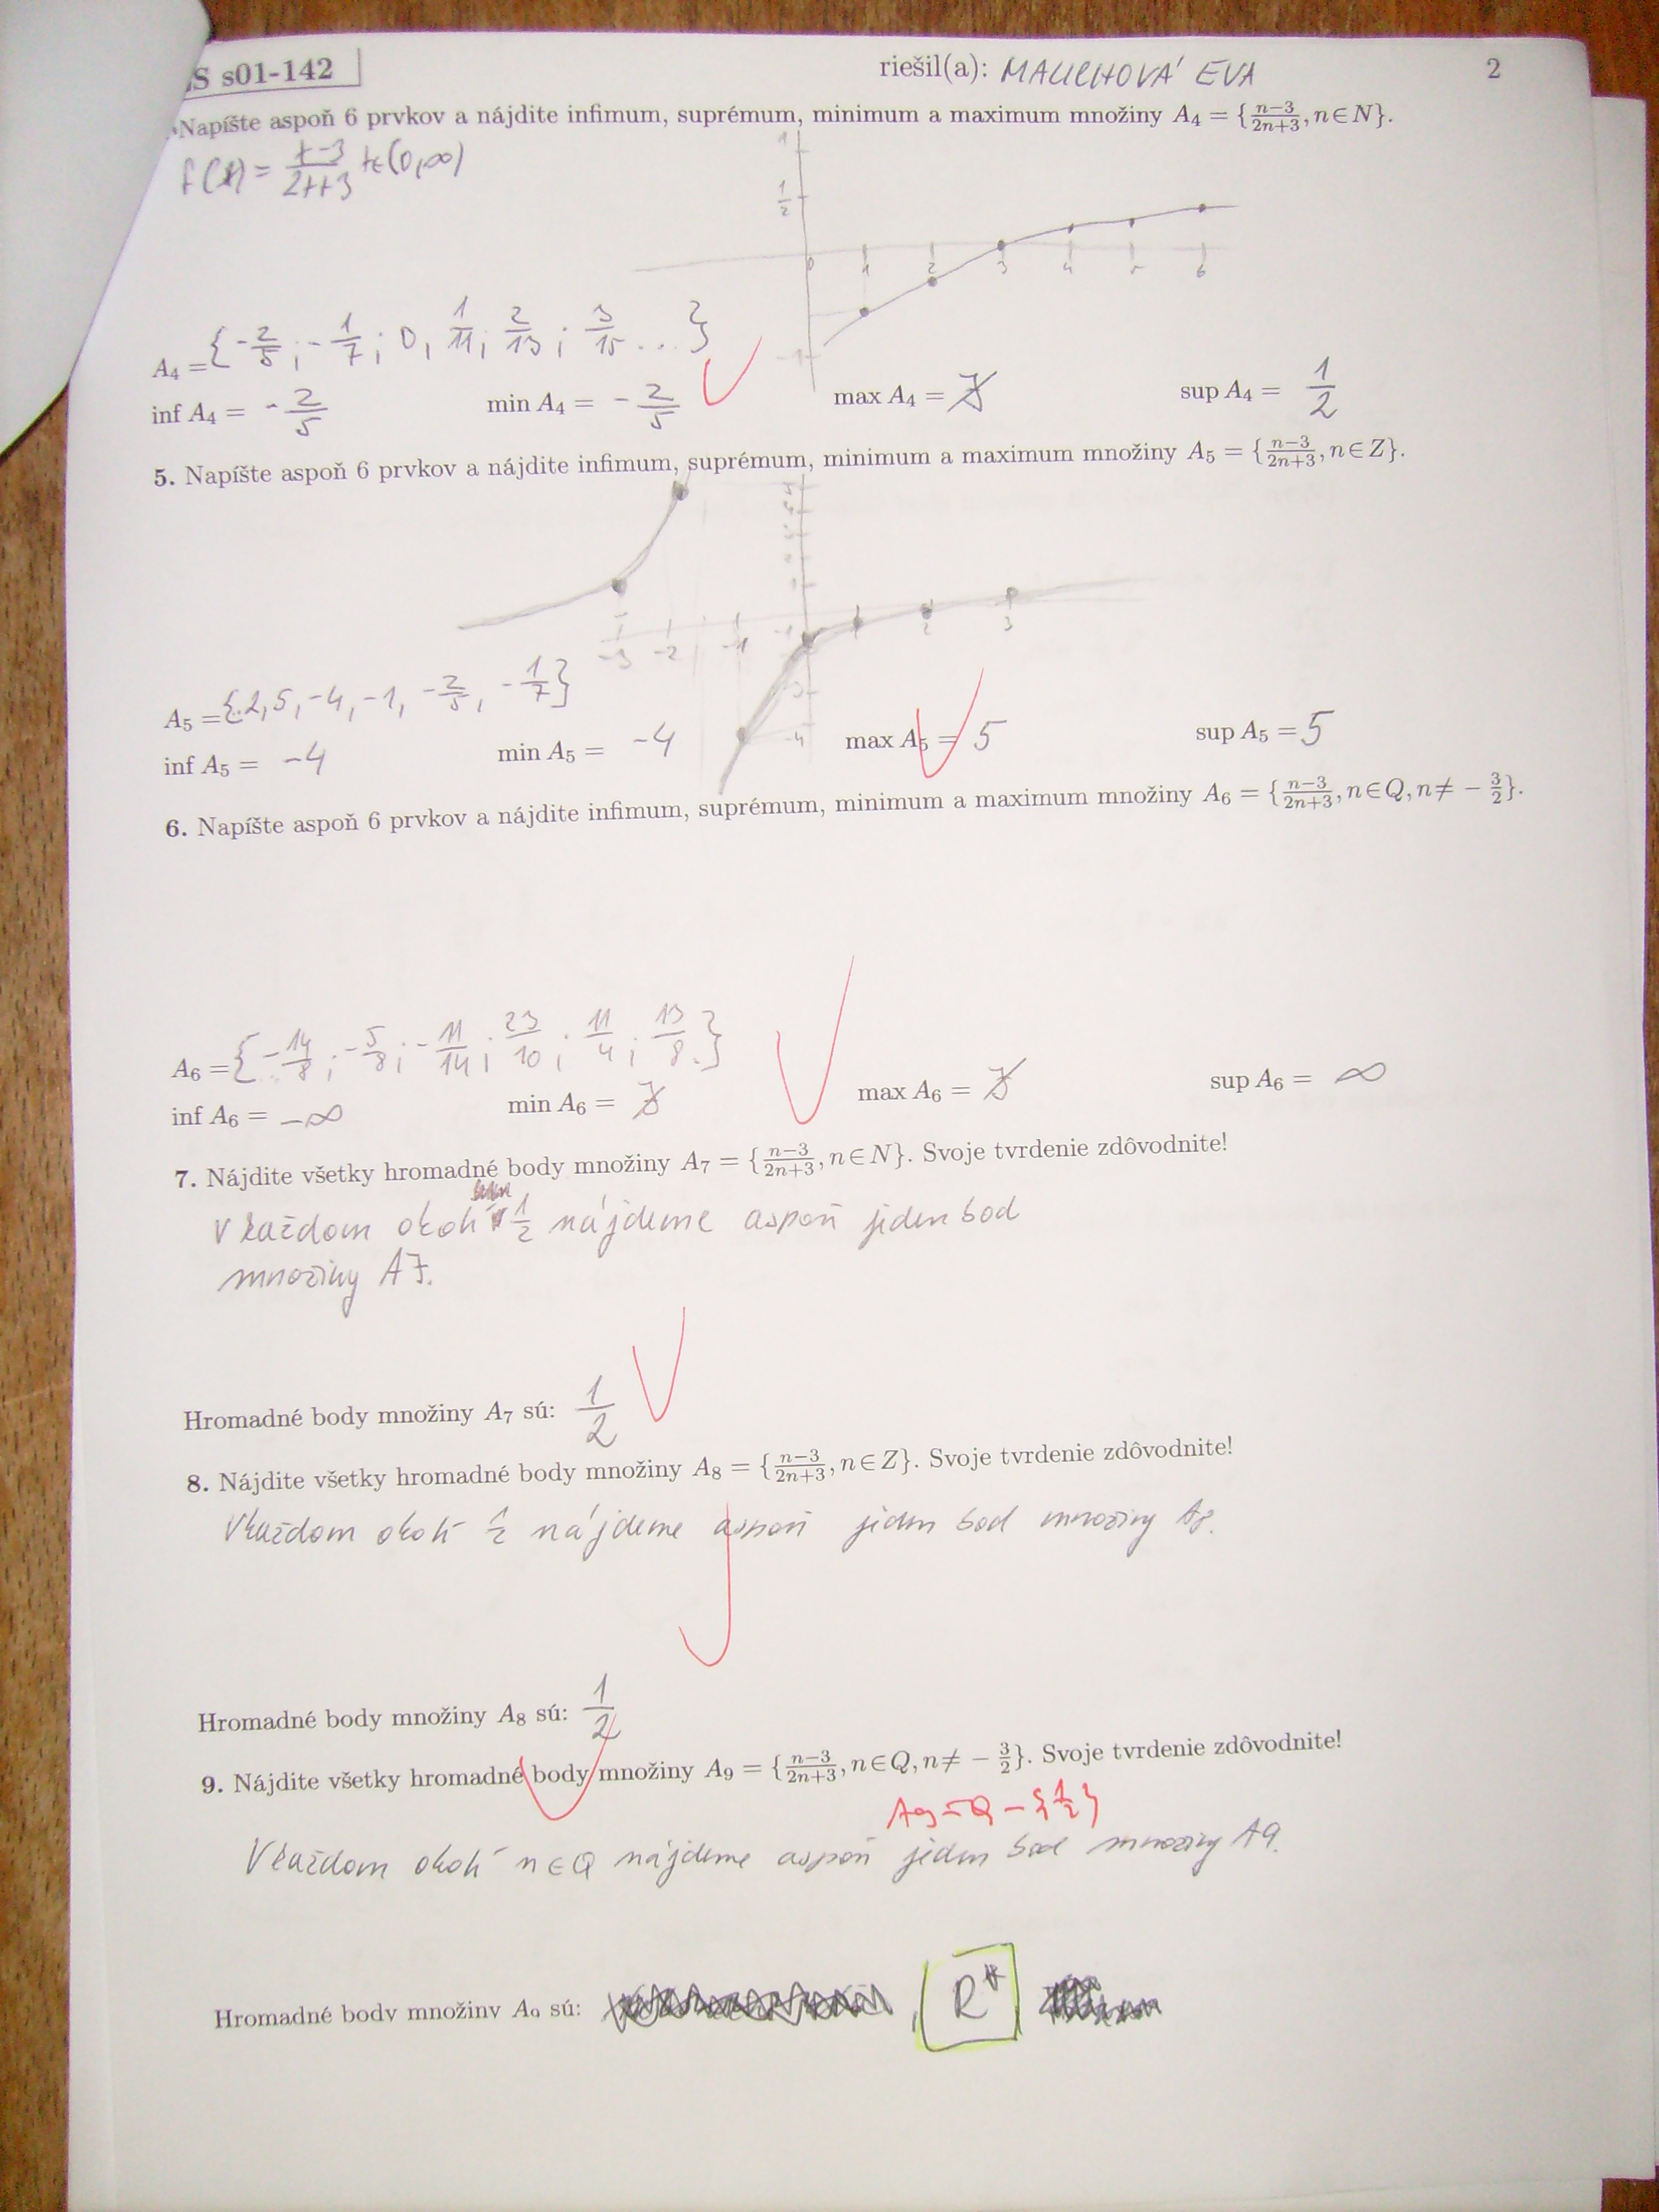 S s01-142
riešil(a): MALICHOVÁ EVA
2
Napíšte aspoň 6 prvkov a nájdite infimum, suprémum, minimum a maximum množiny A₄ = {n−3/2n+3, n∈N}.
f(t) = t−3/2t+3 t∈(0,∞)
1
1/2
0 1 2 3 4 5 6
−1
A₄ = {−2/5; −1/7; 0, 1/11; 2/13; 3/15 ...}
inf A₄ = −2/5 min A₄ = −2/5 max A₄ = ∄ sup A₄ = 1/2
5. Napíšte aspoň 6 prvkov a nájdite infimum, suprémum, minimum a maximum množiny A₅ = {n−3/2n+3, n∈Z}.
−3 −2 −1 2 3
−4
A₅ = {2, 5, −4, −1, −2/5, −1/7}
inf A₅ = −4 min A₅ = −4 max A₅ = 5 sup A₅ = 5
6. Napíšte aspoň 6 prvkov a nájdite infimum, suprémum, minimum a maximum množiny A₆ = {n−3/2n+3, n∈Q, n≠ −3/2}.
A₆ = {−14/8; −5/8; −11/14; 23/10; 11/4; 13/8.}
inf A₆ = −∞ min A₆ = ∄ max A₆ = ∄ sup A₆ = ∞
7. Nájdite všetky hromadné body množiny A₇ = {n−3/2n+3, n∈N}. Svoje tvrdenie zdôvodnite!
V každom okolí 1/2 nájdeme aspoň jeden bod
množiny A7.
Hromadné body množiny A₇ sú: 1/2
8. Nájdite všetky hromadné body množiny A₈ = {n−3/2n+3, n∈Z}. Svoje tvrdenie zdôvodnite!
V každom okolí 1/2 nájdeme aspoň jeden bod množiny A8.
Hromadné body množiny A₈ sú: 1/2
9. Nájdite všetky hromadné body množiny A₉ = {n−3/2n+3, n∈Q, n≠ −3/2}. Svoje tvrdenie zdôvodnite!
A9=Q−{1/2}
V každom okolí n∈Q nájdeme aspoň jeden bod množiny A9.
Hromadné body množiny A₉ sú: , R*